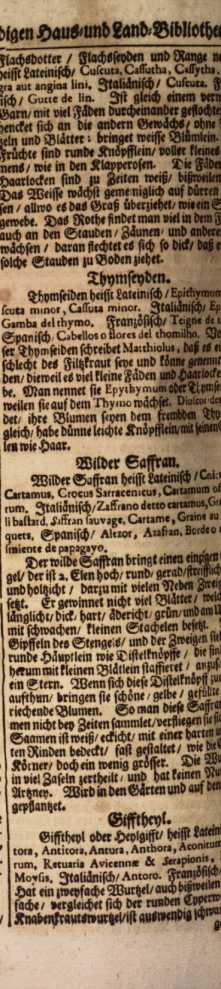 digen Haus-und Land-Bibliothec
Flachsdotter / Flachsseyden und Range
heisst Lateinisch/ Cuscuta, Cassutha, Cassytha,
gra aut angina lini. Italiänisch/ Cuscuta.
isch/ Gutte de lin. Ist gleich einem
Garn/ mit viel Fäden durcheinander geflochte
hencket sich an die andern Gewächs / ohne
zeln und Blätter: bringet weisse Blümlein
Früchte sind runde Knöpfflein/ voller kleines
mens/ wie in den Klapperosen. Die Fäden
Haarlocken sind zu Zeiten weiß/ bißweilen
Das Weisse wächst gemeiniglich auf dürren
sen / allwo es das Graß überziehet/ wie ein
gewebe. Das Rothe findet man viel in dem
auch an den Stauden / Zäunen- und andern
wächsen / daran flechtet es sich so dick/ daß
solche Stauden zu Boden ziehet.
Thymseyden.
Thymseiden heisst Lateinisch / Epithymum
scuta minor, Cassuta minor. Italiänisch/
Gamba del thymo. Französisch/ Teigne de
Spanisch/ Cabellos o flores del thomilho.
ser Thymseiden schreibet Matthiolus, daß es
schlecht des Filtzkraut seye und könne genennt
den / dierweil es viel kleine Fäden und Haarlocke
be. Man nennet sie Epythymum oder Thymse
weilen sie auf dem Thymo wächset.
det/ ihre Blumen seyen dem frembden Thy
gleich/ habe dünne leichte Knöpfflein/ mit
len wie Haar.
Wilder Saffran.
Wilder Saffran heisst Lateinisch /
Cartamus, Crocus Sarracenicus, Cartamum
rum. Italiänisch/ Zaffrano detto cartamus,
li bastard, Saffran sauvage, Cartame, Graine
quets, Spanisch/ Alezor, Azafran,
simiente de papagayo.
Der wilde Saffran bringt einen
gel/ der ist 2. Elen hoch/ rund/ gerad/
und holtzicht / darzu mit vielen Neben
setzt. Er gewinnet nicht viel Blätter /
länglicht/ dick/ hart/ ädericht/ grün/ und am
mit schwachen/ kleinen Stacheln besetzt.
Gipffeln des Stengels/ und der Zweigen
runde Häuptlein wie Distelknöpffe / die
herum mit kleinen Blätlein staffieret /
ein Stern. Wenn sich diese Distelknöpff
aufthun/ bringen sie schöne / gelbe /
riechende Blumen. So man diese Saffran
men nicht bey Zeiten sammlet/ verfliegen sie
Saamen ist weiß/ eckicht/ mit einer harten
ten Rinden bedeckt/ fast gestaltet / wie
Körner/ doch ein wenig grösser. Die
in viel Zaseln zertheilt / und hat keinen
Artzney. Wird in den Gärten und auf den
gepflantzet.
Gifftheyl.
Gifftheyl oder Heylgifft/ heisst Latein
tora, Antitora, Antura, Anthora, Aconitum
rum, Retuaria Avicennæ & Serapionis,
Moysis, Italiänisch/ Antoro. Französisch/
Hat ein zweyfache Wurtzel/ auch bißweilen
fache / vergleichet sich der runden
Knabenkrautswurtzel/ ist auswendig